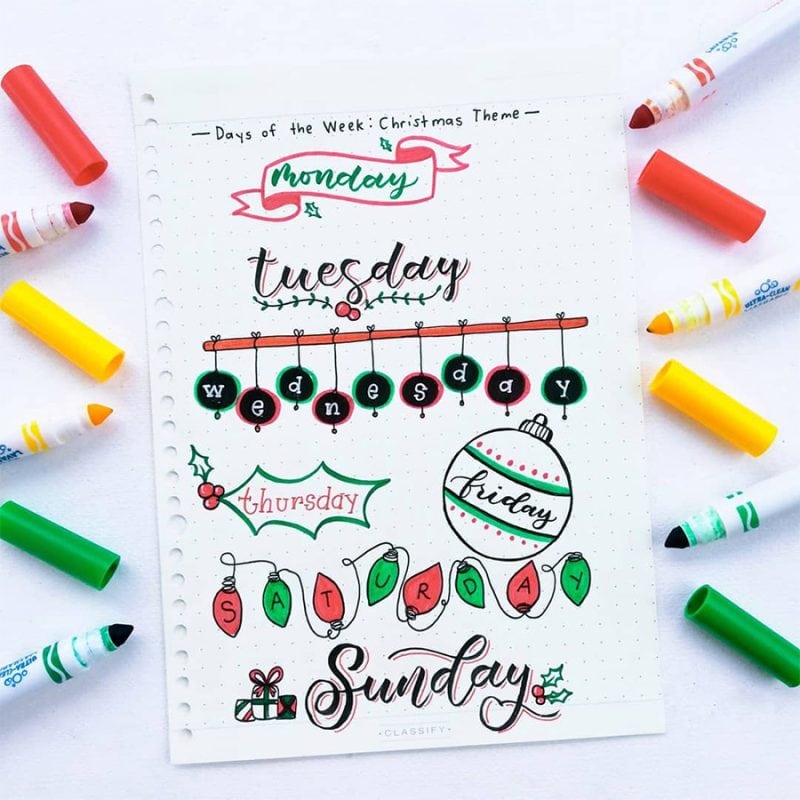 — Days of the Week: Christmas Theme —
monday
tuesday
wednesday
thursday
friday
SATURDAY
Sunday
• CLASSIFY •
ULTRA-CLEAN